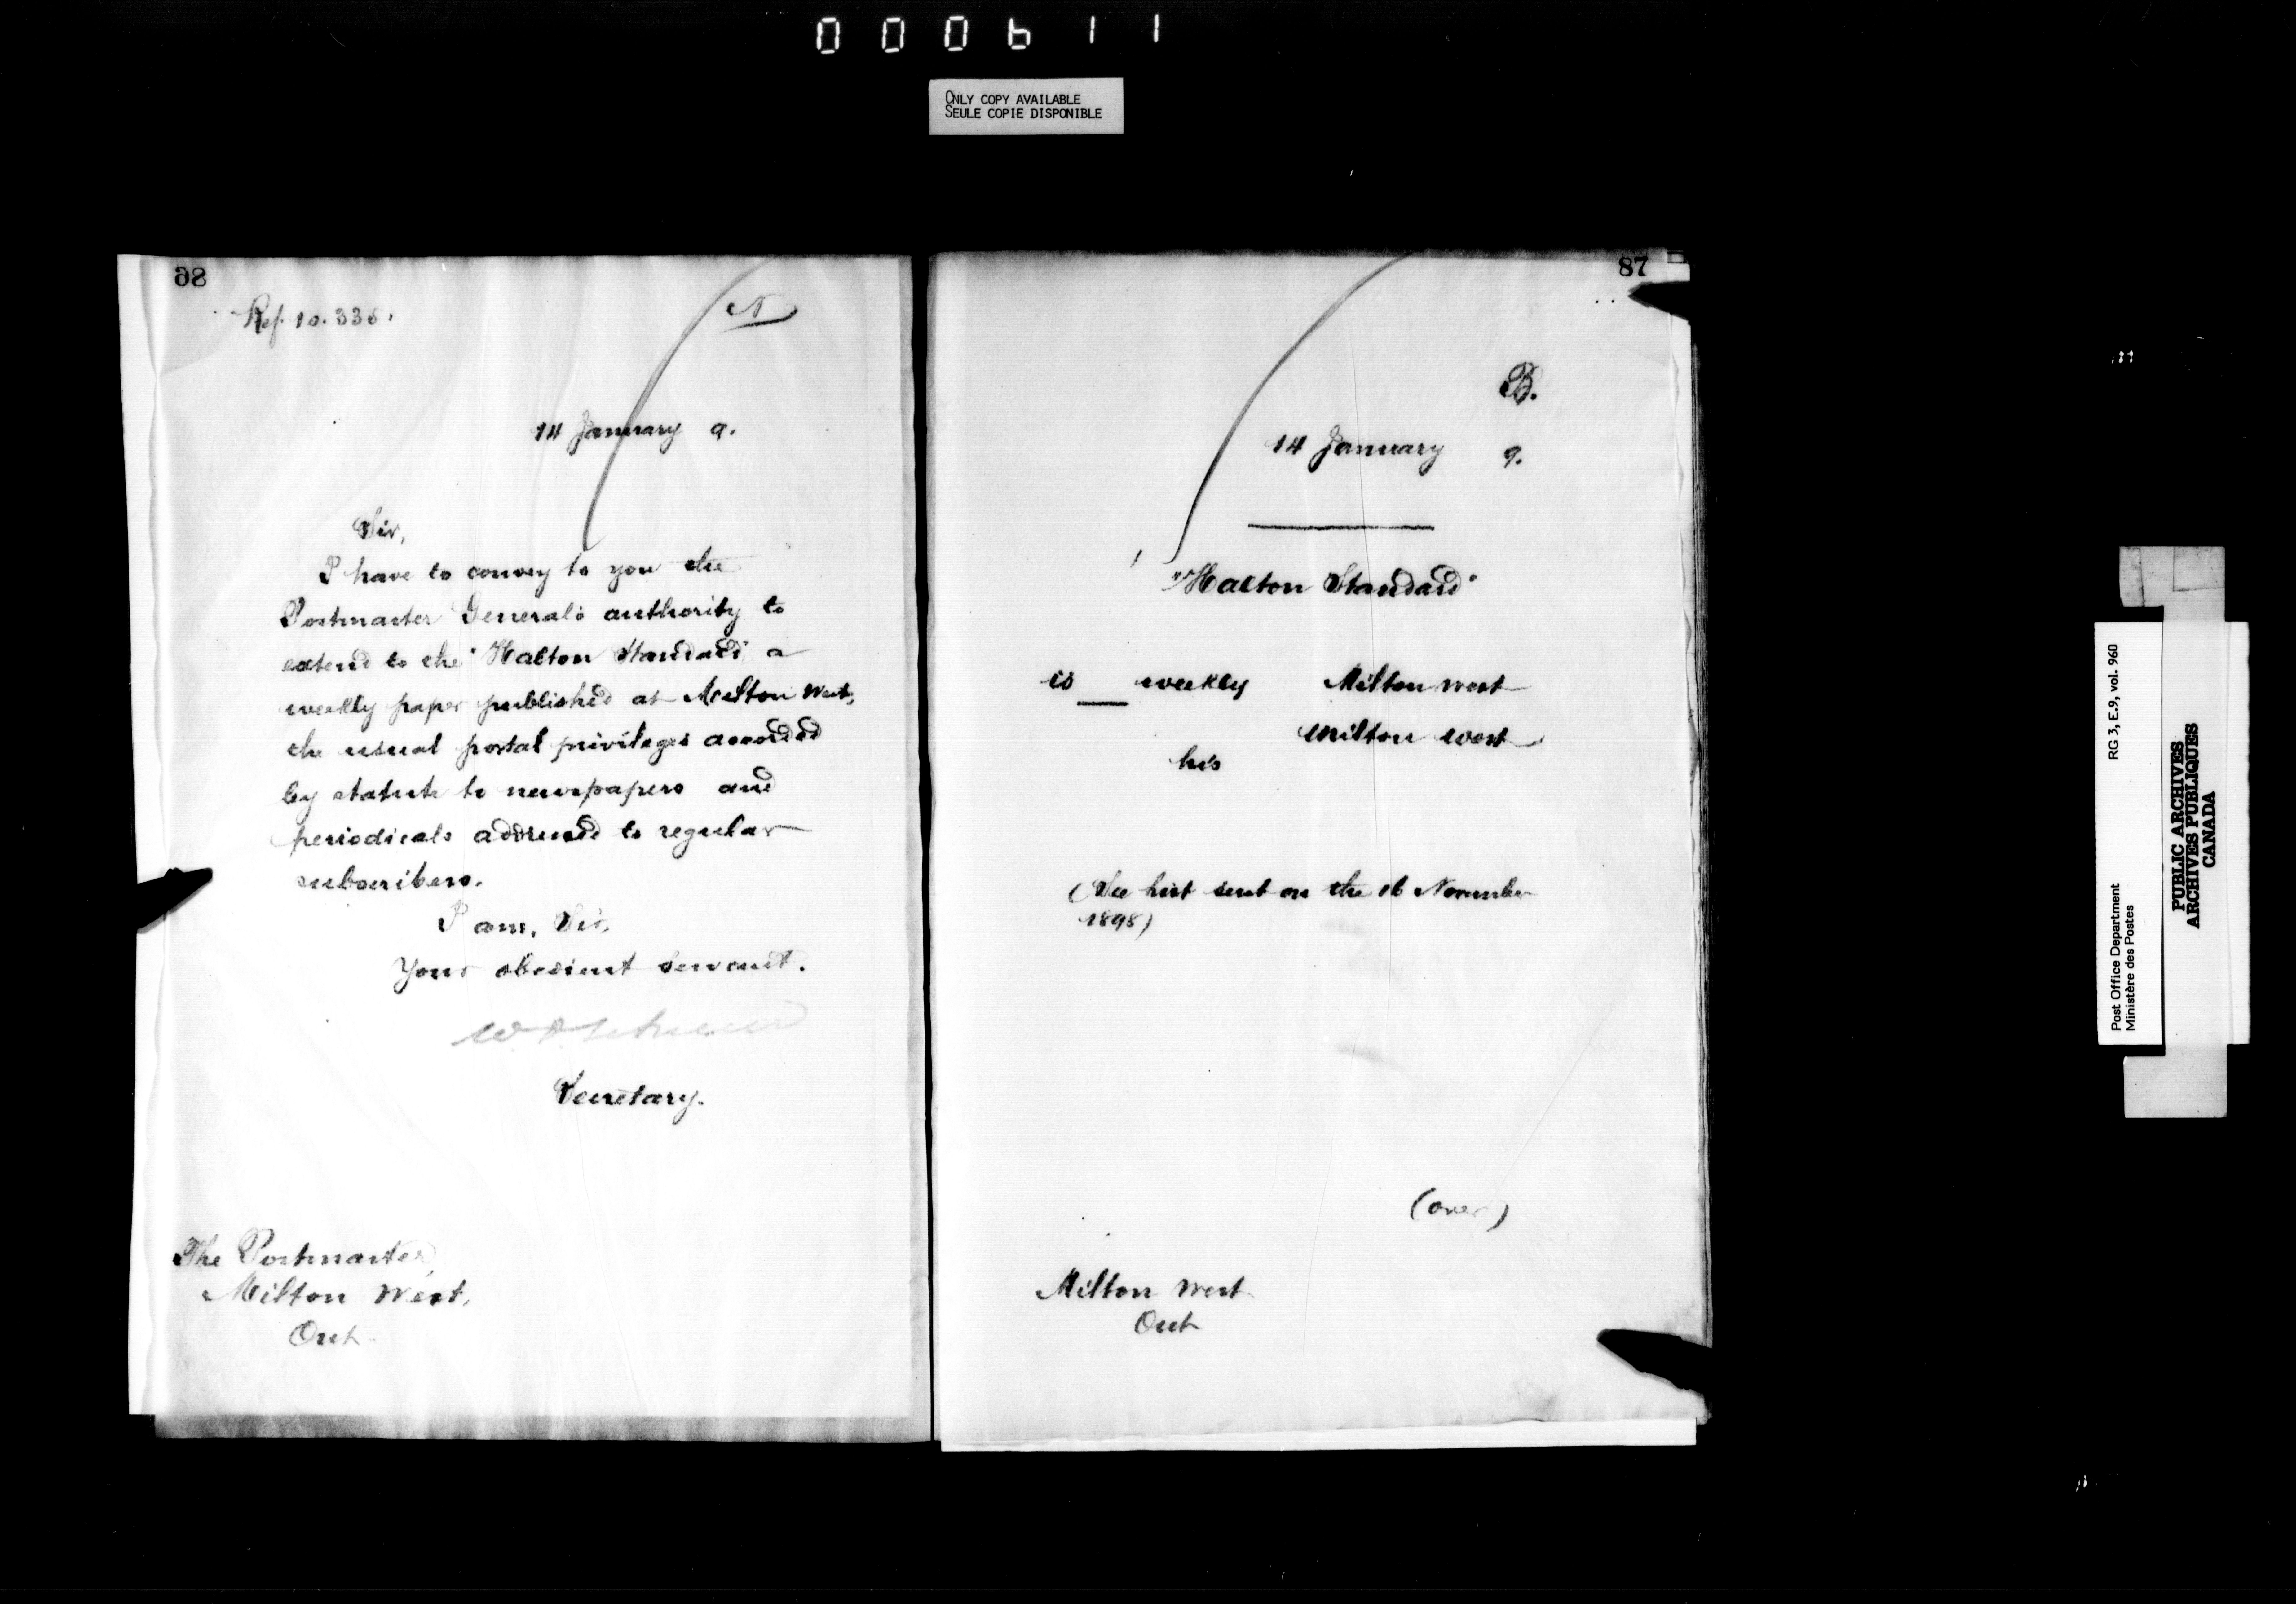 000611
ONLY COPY AVAILABLE
SEULE COPIE DISPONIBLE
86
Ref. 10.336.
N
14 January 9.
Sir,
I have to convey to you the
Postmaster General's authority to
extend to the "Halton Standard", a
weekly paper published at Milton West,
the usual postal privileges accorded
by statute to newspapers and
periodicals addressed to regular
subscribers.
I am, Sir,
Your obedient servant.
Secretary.
The Postmaster,
Milton West,
Ont.
87
B.
14 January 9.
"Halton Standard"
is weekly Milton West
Milton West
his
( sent on the 16 November
1898)
(over)
Milton West
Ont
Post Office Department RG 3, E.9, vol. 960
Ministère des Postes
PUBLIC ARCHIVES
ARCHIVES PUBLIQUES
CANADA